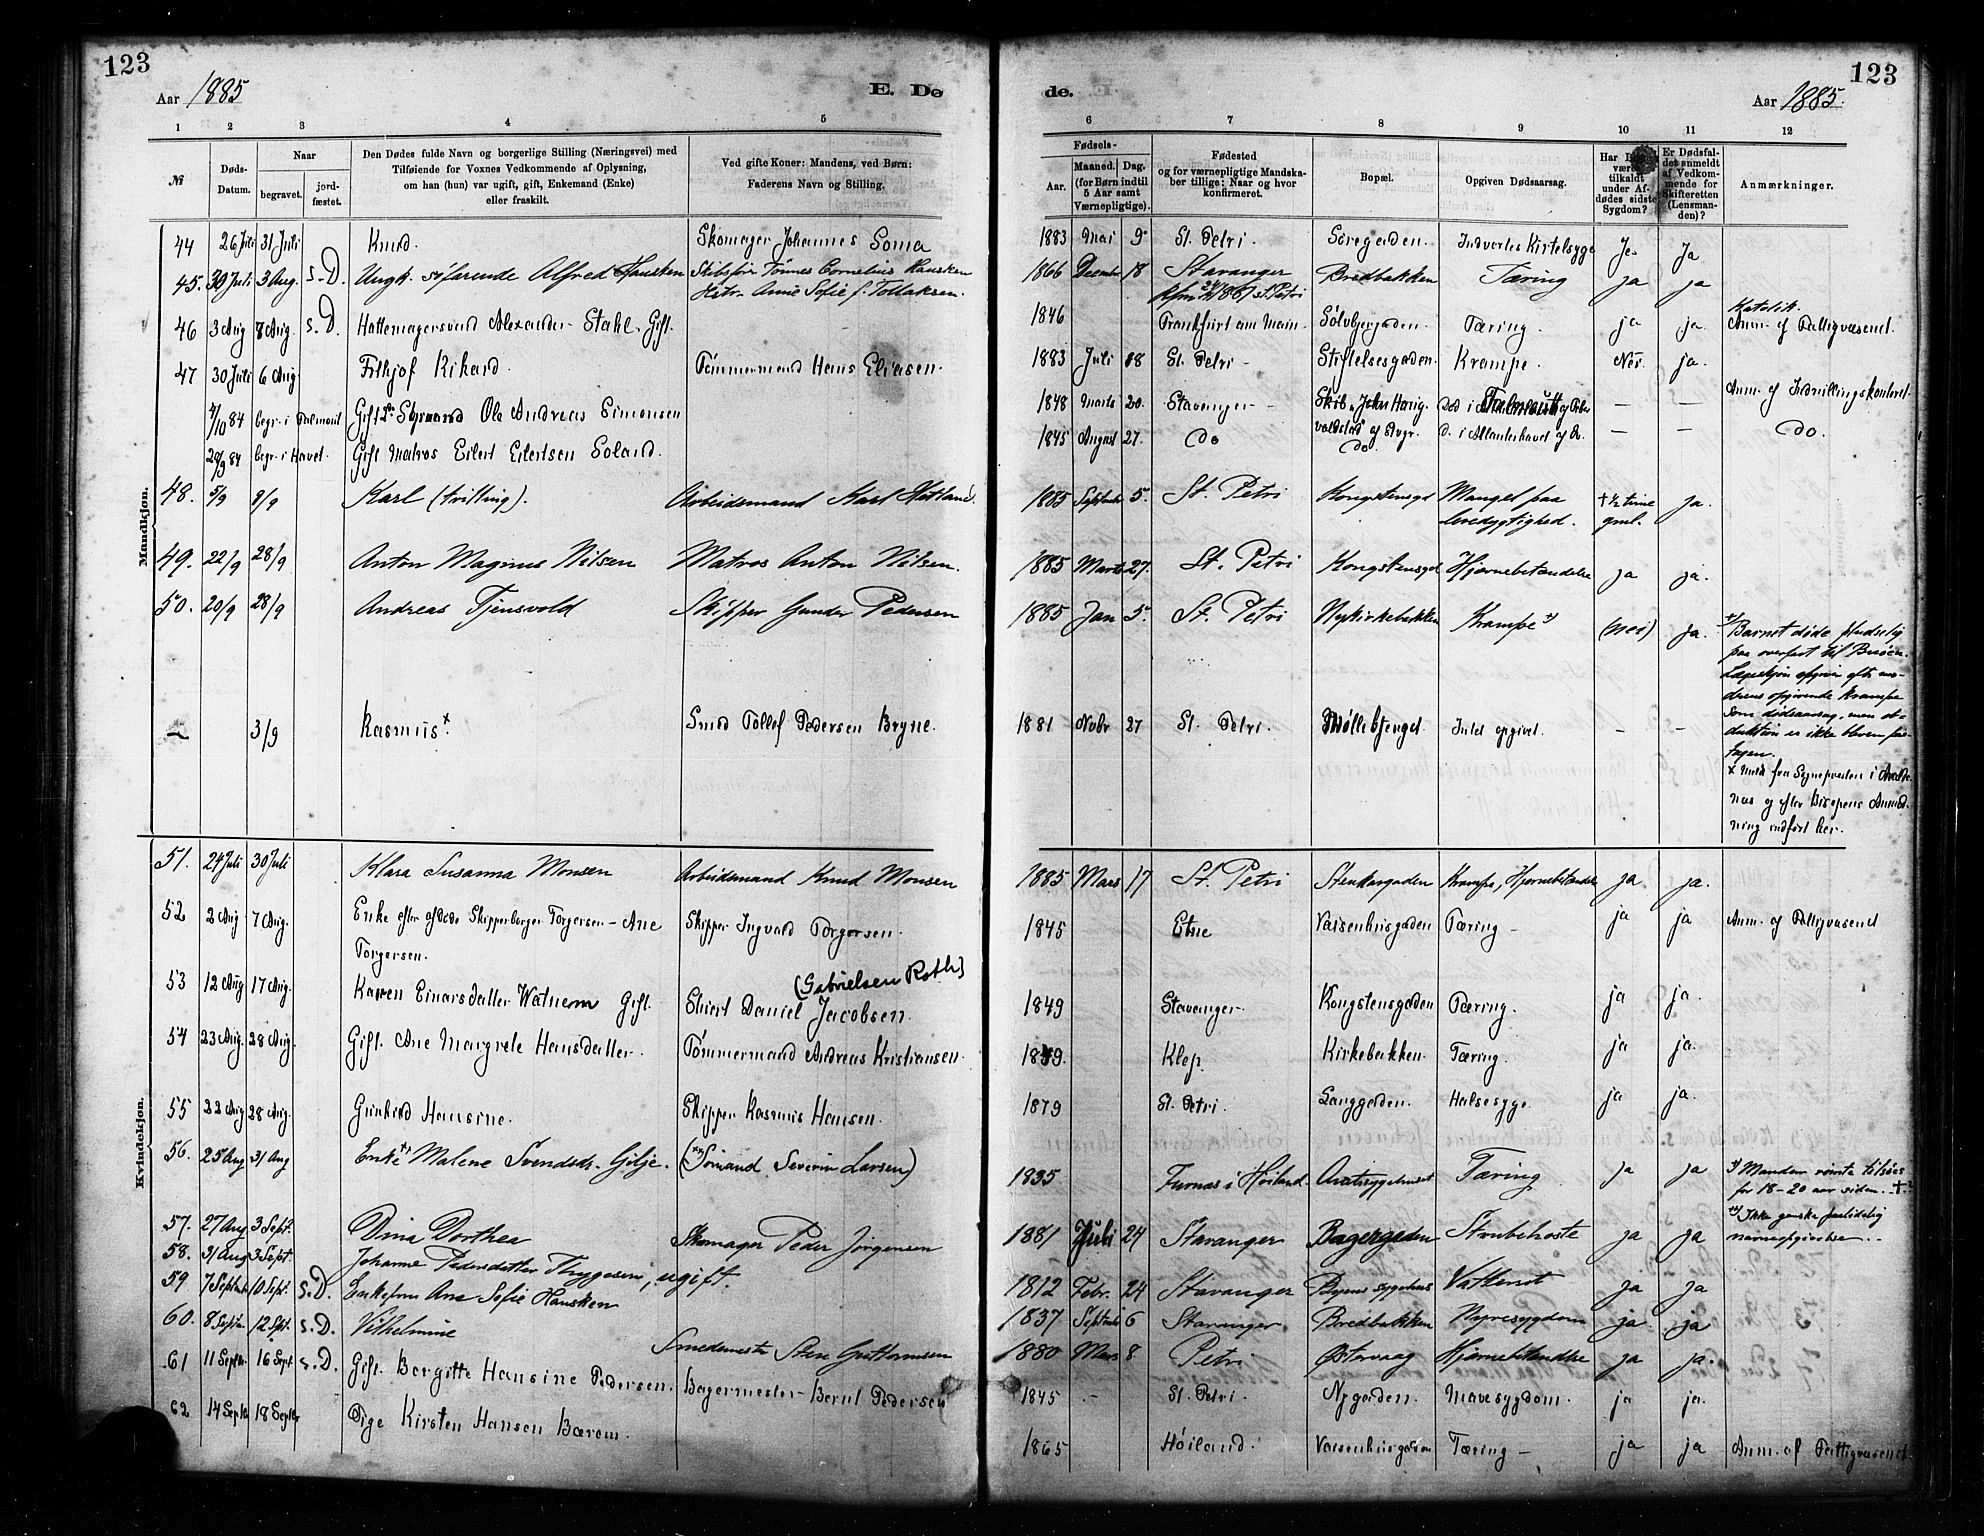 123
Aar 1885
E. Dø
1 2 3 4 5
№
Døds-Datum.
Naar
begravet.
jord-fæstet.
Den Dødes fulde Navn og borgerlige Stilling (Næringsvei) med
Tilføiende for Voxnes Vedkommende af Oplysning,
om han (hun) var ugift, gift, Enkemand (Enke)
eller fraskilt.
Ved gifte Koner: Mandens, ved Børn:
Faderens Navn og Stilling.
Mandkjøn.
44 26 Juli 31 Juli Knud. Skomager Johannes Soma
45. 30 Juli 3 Aug. s.D. Ungk. søfarende Alfred Hausken Skibsfør. Tønnes Cornelius Hausken
Hstr. Anne Sofie f. Tollaksen.
46 3 Aug 8 Aug. s.D. Hattemagersvend Alexander Stahl. Gift.
47 30 Juli 6 Aug Frithjof Rikard. Tømmermand Hans Eliasen.
4/10 84 begr. i Falmouth Gift Styrmand Ole Andreas Simonsen
28/9 84 begr. i Havet. Gift Matros Eilert Eilertsen Soland.
48. 5/9 9/9 Karl (tvilling). Arbeidsmand Karl Hatland.
49. 22/9 28/9 Anton Magnus Nilsen Matros Anton Nilsen.
50. 20/9 28/9 Andreas Tjensvold Skipper Gunder Pedersen
— 3/9 Rasmus x Smed Tollef Pedersen Bryne.
Kvindekjøn.
51. 24 Juli 30 Juli Klara Susanna Monsen Arbeidsmand Knud Monsen
52 2 Aug 7 Aug. Enke efter afdøde Skipperborger Torgersen – Ane Skipper Ingvald Torgersen.
Torgersen.
53 12 Aug 17 Aug. Karen Einarsdatter Watnem Gift. (Gabrielsen Roth)
Eliert Daniel Jacobsen.
54 23 Aug. 28 Aug. Gift. Ane Margrete Hansdatter. Tømmermand Andreas Kristiansen.
55 22 Aug 28 Aug. Gunhild Hansine. Skipper Rasmus Hansen.
56. 25 Aug 31 Aug Enke Malene Svendsd. Gilje. (Sømand Severin Larsen)
57. 27 Aug 3 Sept. Dina Dorthea Skomager Peder Jørgensen
58. 31 Aug 3 Sept. Johanne Pedersdatter Thyggesen, ugift.
59 7 Septembr 10 Sept. s.D. Enkefru Ane Sofie Hausken
60. 8 Septbr. 12 Sept. s.D. Vilhelmine Smedemester Sten Guttormsen
61 11 Septbr. 16 Sept s.D. Gift. Borgitte Hansine Pedersen. Bagermester Bernt Pedersen
62 14 Septb 18 Septbr Pige Kirsten Hansen Bærem.
123
de.
Aar 1885.
6 7 8 9 10 11 12
Fødsels-
Aar.
Maaned. Dag.
(for Børn indtil
5 Aar samt
Værnepligtige).
Fødested
og for værnepligtige Mandska-
ber tillige: Naar og hvor
konfirmeret.
Bopæl.
Opgiven Dødsaarsag.
Har Læge
været
tilkaldt
under Af-
dødes sidste
Sygdom?
Er Dødsfal-
det anmeldt
af Vedkom-
mende for
Skifteretten
(Lensman-
den)?
Anmærkninger.
1883 Mai 9 St. Petri. Søregaden. Indvortes Kirtelsyge Ja Ja
1866 Decembr 18 Stavanger Bredbakken Tæring ja ja
1846 Frankfurt am Main Sølvbergaden. Tæring. ja ja. Katolik.
Anm. af Fattigvæsenet.
1883 Juli 18 St. Petri – Stiftelsesgaden. Krampe. Nei. ja.
1848 Marts 20. Stavanger – Skib. John Haug- Død i Falmouth af Feber — — Anm. af Indrulleringskontoret
1845 August 27. Do valdstad af Stvgr. Do. D. i Atlanterhavet — — Do.
1885 September 5. St. Petri Kongstensgd Mangel paa † ½ time ja.
levedygtighed. gml.
1885 Marts 27. St. Petri Kongstensgd Hjernebetændelse ja ja.
1885 Jan 5. St. Petri Nykirkebakken Krampe x) (nei) ja.
x) Barnet døde pludselig
paa overfart til Buøen.
Lægeskjøn opgiver efter mo-
drens opgivende Krampe
som dødsaarsag, men ob-
duktion er ikke bleven fore-
tagen.
1881 Novbr 27 St. Petri. Møllebjerget Intet opgivet. – –
x Meld fra Sognepresten i Avalds-
nes og efter Biskopens Anmod-
ning indført her.
1885 Mars 17 St. Petri Stenkargaden Krampe, Hjernebetændelse ja ja.
1845 Etne Vaisenhusgaden Tæring – ja ja Anm. af Fattigvæsenet
1849 Stavanger Kongstensgaden Tæring. ja ja.
1849. Klep. Kirkebakken. Tæring. ja ja.
1879 St. Petri. Langgaden. Halsesyge. ja ja.
1835 Furnæs i Høiland. Amtssygehuset Tæring ja ja x) Manden rømte tilsøes
for 18–20 aar siden.
xx) Ikke ganske paalidelig
navneopgivelse.
1881 Juli 24 Stavanger Bagergaden Strubehoste ja ja
1812 Febr. 24 Stavanger Byens sygehus Vattersot ja ja
1837 September 6 Stavanger Bredbakken Nyresygdom ja ja
1880 Mars 8 Petri Østervaag Hjernebetændelse ja ja.
1845 – St. Petri. Nygaden. Mavesygdom. ja ja.
1865 Høiland. Vaisenhusgaden Tæring – ja ja Anm. af Fattigvæsenet